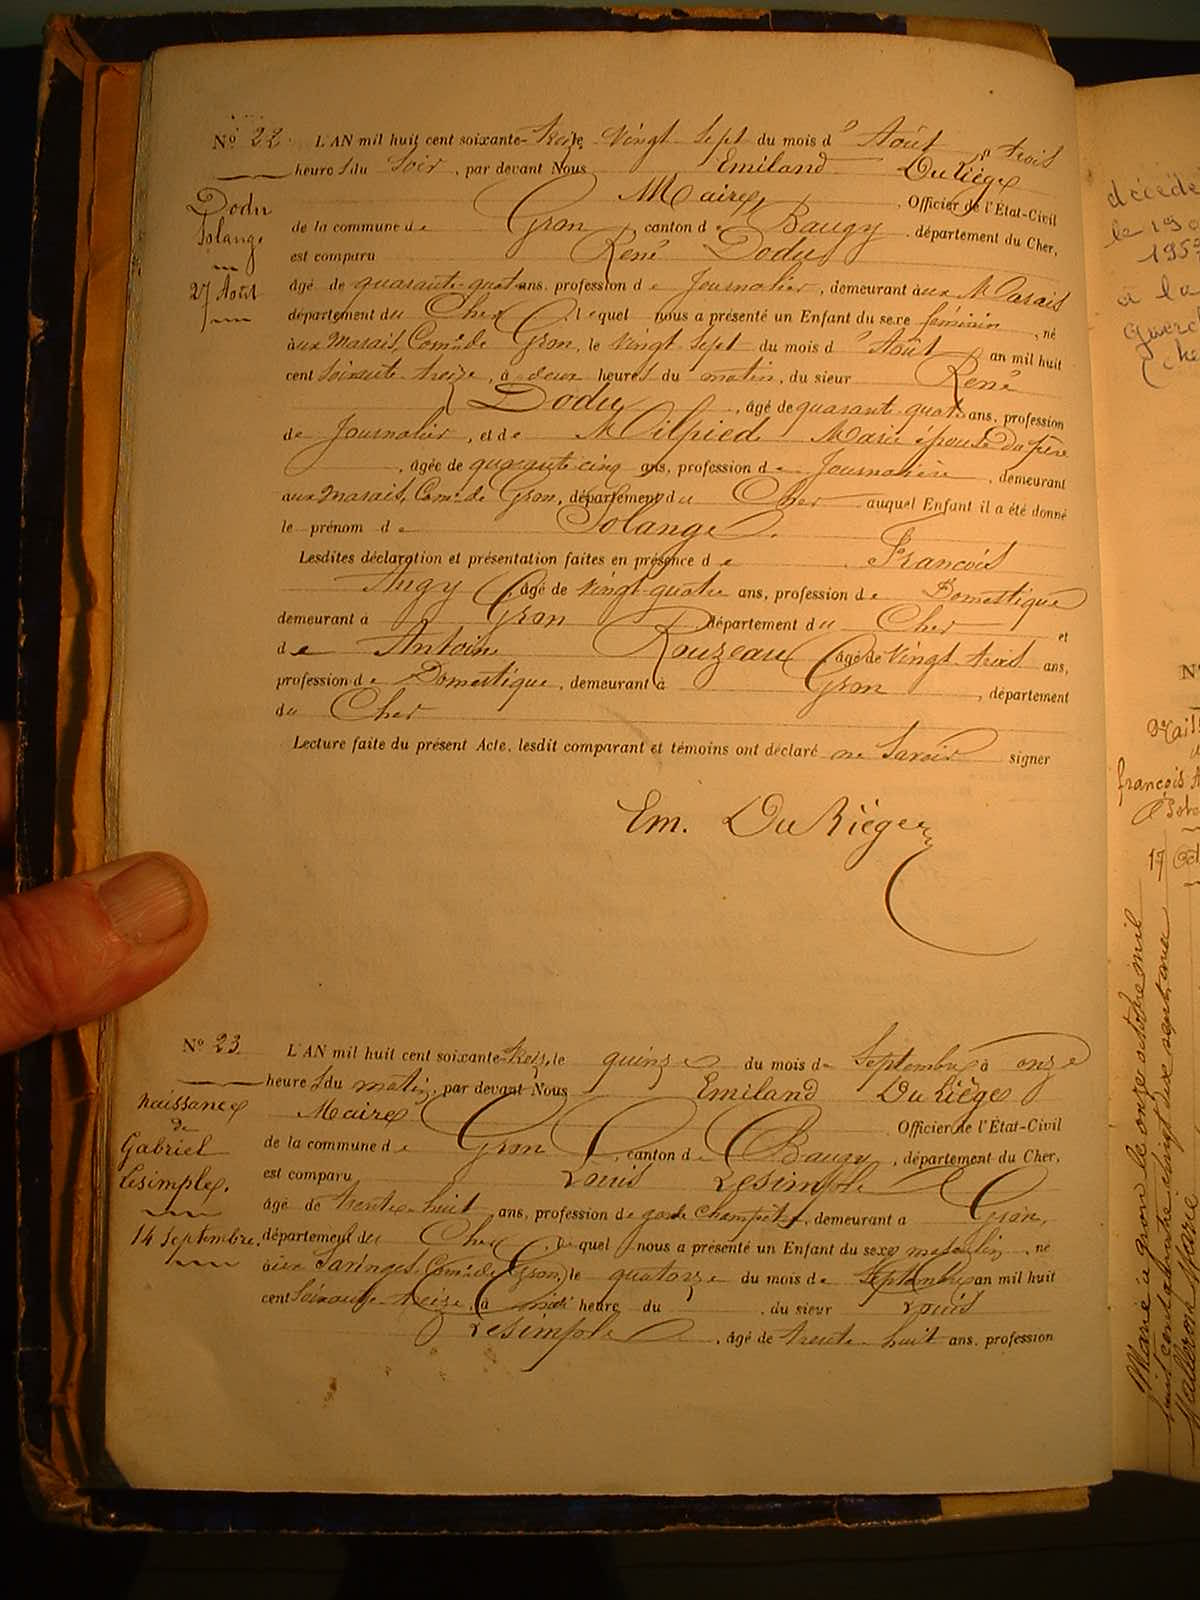 N° 22. L'AN mil huit cent soixante-treize le Vingt Sept du mois d' Août à trois
heures du Soir, par devant Nous Emiland Du Liège
Maire, Officier de l'État-Civil
Dodu
Solange
27 Août
de la commune de Gron canton de Baugy, département du Cher,
est comparu René Dodu
âgé de quarante-quatre ans, profession de Journalier, demeurant aux Marais
département du Cher, lequel nous a présenté un Enfant du sexe féminin, né
aux Marais, Comne de Gron, le vingt sept du mois d' Août an mil huit
cent soixante-treize, à deux heures du matin, du sieur René
Dodu, âgé de quarante-quatre ans, profession
de Journalier, et de Milpied Marie épouse du père
, agée de quarante cinq ans, profession de Journalière, demeurant
aux Marais, Comne de Gron, département du Cher auquel Enfant il a été donné
le prénom de Solange.
Lesdites déclaration et présentation faites en présence de François
Augy, âgé de vingt-quatre ans, profession de Domestique
demeurant à Gron département du Cher et
de Antoine Rouzeau âgé de Vingt-trois ans,
profession de Domestique, demeurant à Gron, département
du Cher
Lecture faite du présent Acte, lesdit comparant et témoins ont déclaré ne Savoir signer
Em. Du Liège
N° 23. L'AN mil huit cent soixante-treize, le quinze du mois de Septembre à onze
heures du matin, par devant Nous Emiland Du Liège
Maire Officier de l'État-Civil
Naissance
de
Gabriel
Lesimple.
14 Septembre.
de la commune de Gron, canton de Baugy, département du Cher,
est comparu Louis Lesimple
âgé de trente-huit ans, profession de garde champêtre, demeurant a Gron,
département du Cher, lequel nous a présenté un Enfant du sexe masculin né
aux Comne de Gron, le quatorze du mois de Septembre an mil huit
cent soixante-treize, à midi heure du, du sieur Louis
Lesimple, âgé de trente-huit ans, profession
décédé
le 19
195
à la
Guerch
(che
N°
Naiss
françois
17 Oct
Marié à Gron le onze octobre mil
huit cent quatre vingt dix sept avec
Marie